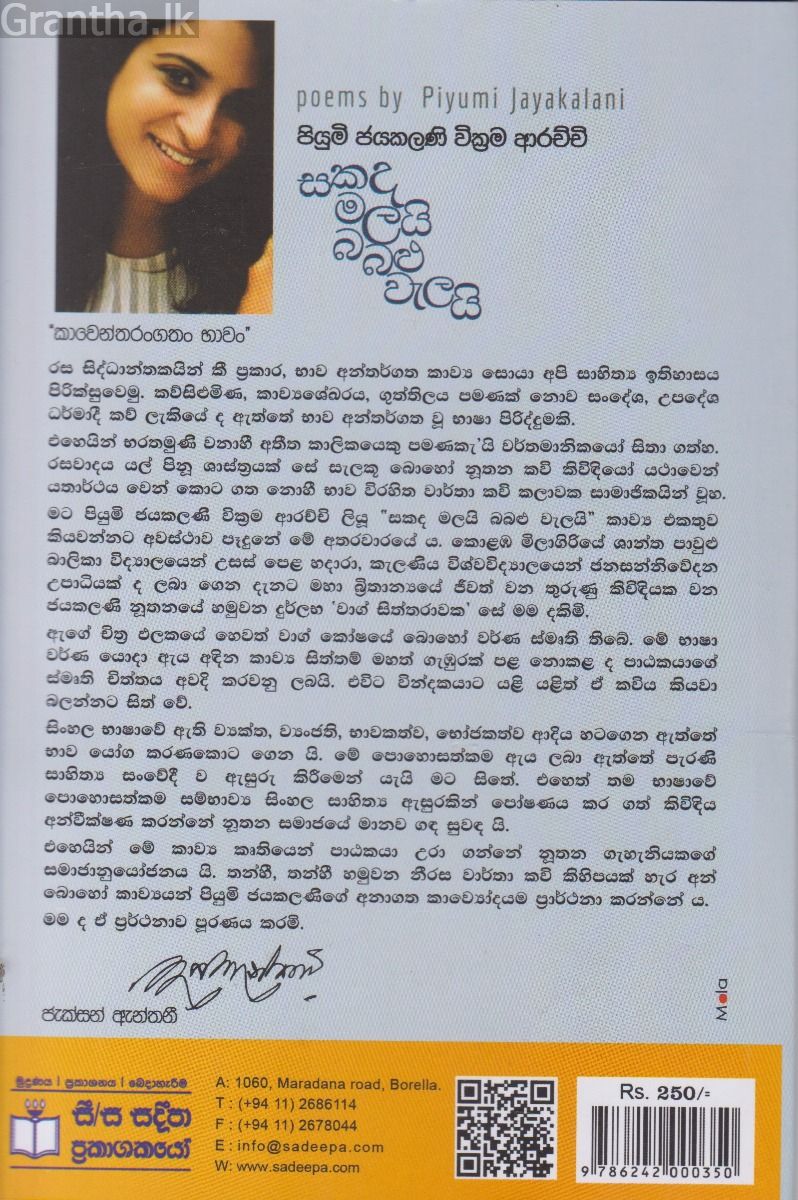 Grantha.lk
poems by Piyumi Jayakalani
පියුමි ජයකලණි වික්‍රම ආරච්චි
සකද
මලයි
බබළු
වැලයි
"කාවෙන්තරංගතං භාවං"
රස සිද්ධාන්තකයින් කී ප්‍රකාර, භාව අන්තර්ගත කාව්‍ය සොයා අපි සාහිත්‍ය ඉතිහාසය
පිරික්සුවෙමු. කව්සිළුමිණ, කාව්‍යශේඛරය, ගුත්තිලය පමණක් නොව සංදේශ, උපදේශ
ධර්මාදී කව් ලැකියේ ද ඇත්තේ භාව අන්තර්ගත වූ භාෂා පිරිද්දුමකි.
එහෙයින් භරතමුණි වනාහී අතීත කාලිකයෙකු පමණකැ'යි වර්තමානිකයෝ සිතා ගත්හ.
රසවාදය යල් පිනූ ශාස්ත්‍රයක් සේ සැලකූ බොහෝ නූතන කවි කිවිඳියෝ යථාවෙන්
යතාර්ථය වෙන් කොට ගත නොහී භාව විරහිත වාර්තා කවි කලාවක සාමාජිකයින් වූහ.
මට පියුමි ජයකලණි වික්‍රම ආරච්චි ලියූ "සකද මලයි බබළු වැලයි" කාව්‍ය එකතුව
කියවන්නට අවස්ථාව පෑදුනේ මේ අතරවාරයේ ය. කොළඹ මිලාගිරියේ ශාන්ත පාවුළු
බාලිකා විද්‍යාලයෙන් උසස් පෙළ හදාරා, කැලණිය විශ්වවිද්‍යාලයෙන් ජනසන්නිවේදන
උපාධියක් ද ලබා ගෙන දැනට මහා බ්‍රිතාන්‍යයේ ජීවත් වන තුරුණු කිවිඳියක වන
ජයකලණි නූතනයේ හමුවන දුර්ලභ 'වාග් සිත්තරාවක' සේ මම දකිමි.
ඇගේ චිත්‍ර ඵලකයේ හෙවත් වාග් කෝෂයේ බොහෝ වර්ණ ස්මෘති තිබේ. මේ භාෂා
වර්ණ යොදා ඇය අඳින කාව්‍ය සිත්තම් මහත් ගැඹුරක් පළ නොකළ ද පාඨකයාගේ
ස්මෘති චිත්තය අවදි කරවනු ලබයි. එවිට වින්දකයාට යළි යළිත් ඒ කවිය කියවා
බලන්නට සිත් වේ.
සිංහල භාෂාවේ ඇති ව්‍යක්ත, ව්‍යංජති, භාවකත්ව, භෝජකත්ව ආදිය හටගෙන ඇත්තේ
භාව යෝග කරණකොට ගෙන යි. මේ පොහොසත්කම ඇය ලබා ඇත්තේ පැරණි
සාහිත්‍ය සංවේදී ව ඇසුරු කිරීමෙන් යැයි මට සිතේ. එහෙත් තම භාෂාවේ
පොහොසත්කම සම්භාව්‍ය සිංහල සාහිත්‍ය ඇසුරකින් පෝෂණය කර ගත් කිවිඳිය
අන්වීක්ෂණ කරන්නේ නූතන සමාජයේ මානව ගඳ සුවඳ යි.
එහෙයින් මේ කාව්‍ය කෘතියෙන් පාඨකයා උරා ගන්නේ නූතන ගැහැනියකගේ
සමාජානුයෝජනය යි. තන්හී, තන්හී හමුවන නීරස වාර්තා කවි කිහිපයක් හැර අන්
බොහෝ කාව්‍යයන් පියුමි ජයකලණිගේ අනාගත කාව්‍යෝදයම ප්‍රාර්ථනා කරන්නේ ය.
මම ද ඒ ප්‍රර්ථනාව පූරණය කරමි.
ජැක්සන් ඇන්තනී
Mola
මුද්‍රණය | ප්‍රකාශනය | බෙදාහැරීම
සී/ස සදීප
ප්‍රකාශකයෝ
A: 1060, Maradana road, Borella.
T : (+94 11) 2686114
F : (+94 11) 2678044
E : info@sadeepa.com
W: www.sadeepa.com
Rs. 250/=
9 786242 000350